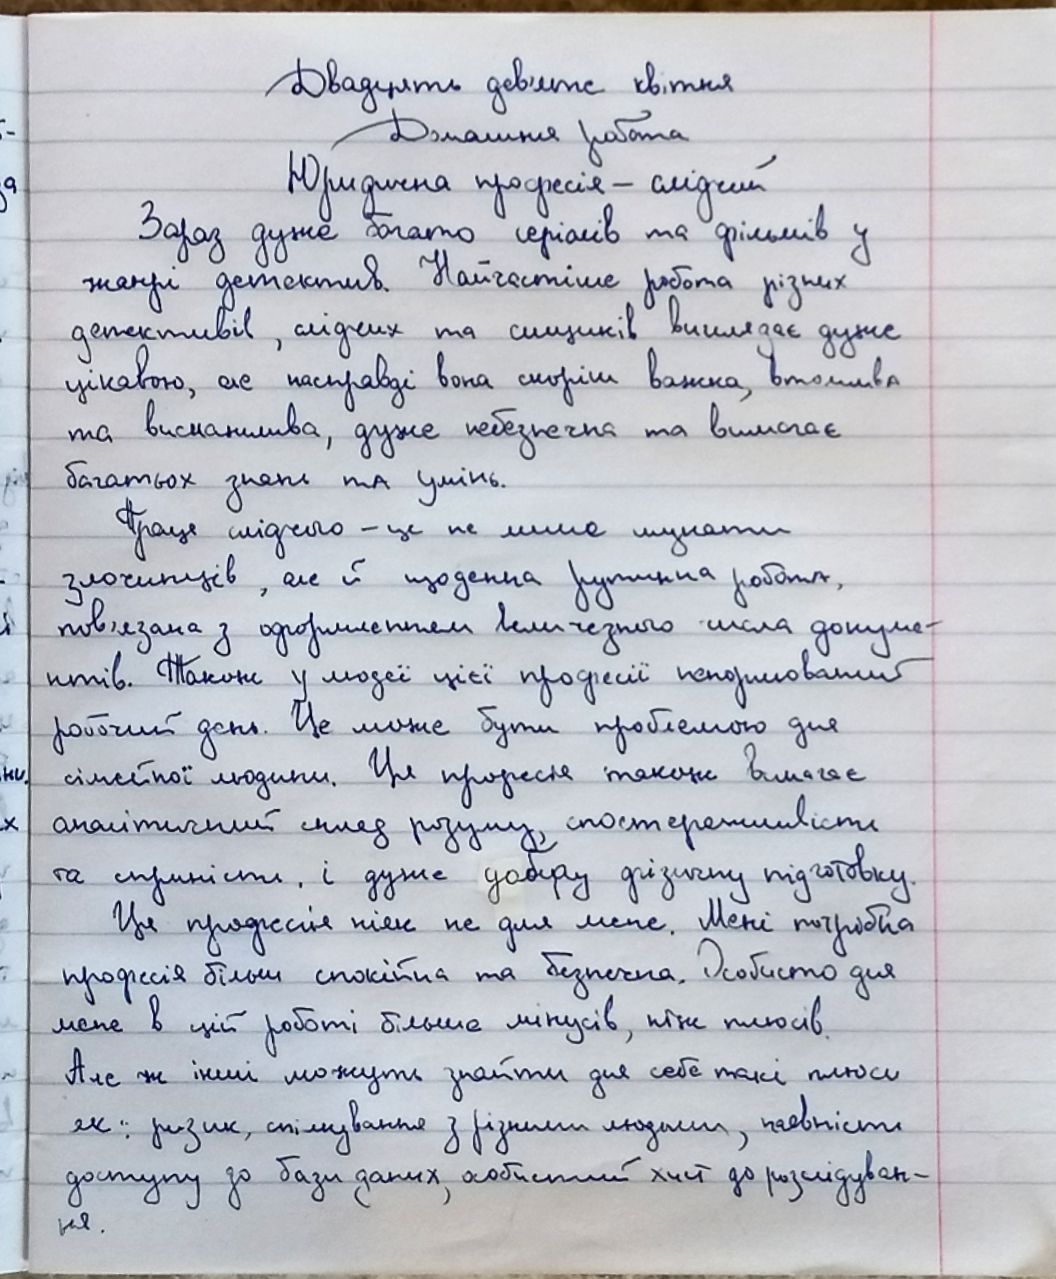 Двадцять дев'яте квітня
Домашня робота
Юридична професія – слідчий
Зараз дуже багато серіалів та фільмів у
жанрі детектив. Найчастіше робота різних
детективів, слідчих та сищиків виглядає дуже
цікавою, але насправді вона скоріш важка, втомлива
та виснажлива, дуже небезпечна та вимагає
багатьох знань та умінь.
Праця слідчого – це не лише шукати
злочинців, але й щоденна рутинна робота,
пов'язана з оформленням величезного числа докуме-
нтів. Також у людей цієї професії ненормований
робочий день. Це може бути проблемою для
сімейної людини. Ця професія також вимагає
аналітичний склад розуму, спостережливість
та спритність, і дуже добру фізичну підготовку.
Ця професія ніяк не для мене. Мені потрібна
професія більш спокійна та безпечна. Особисто для
мене в цій роботі більше мінусів, ніж плюсів.
Але ж інші можуть знайти для себе такі плюси
як: ризик, спілкування з різними людьми, наявність
доступу до бази даних, особистий хист до розслідуван-
ня.